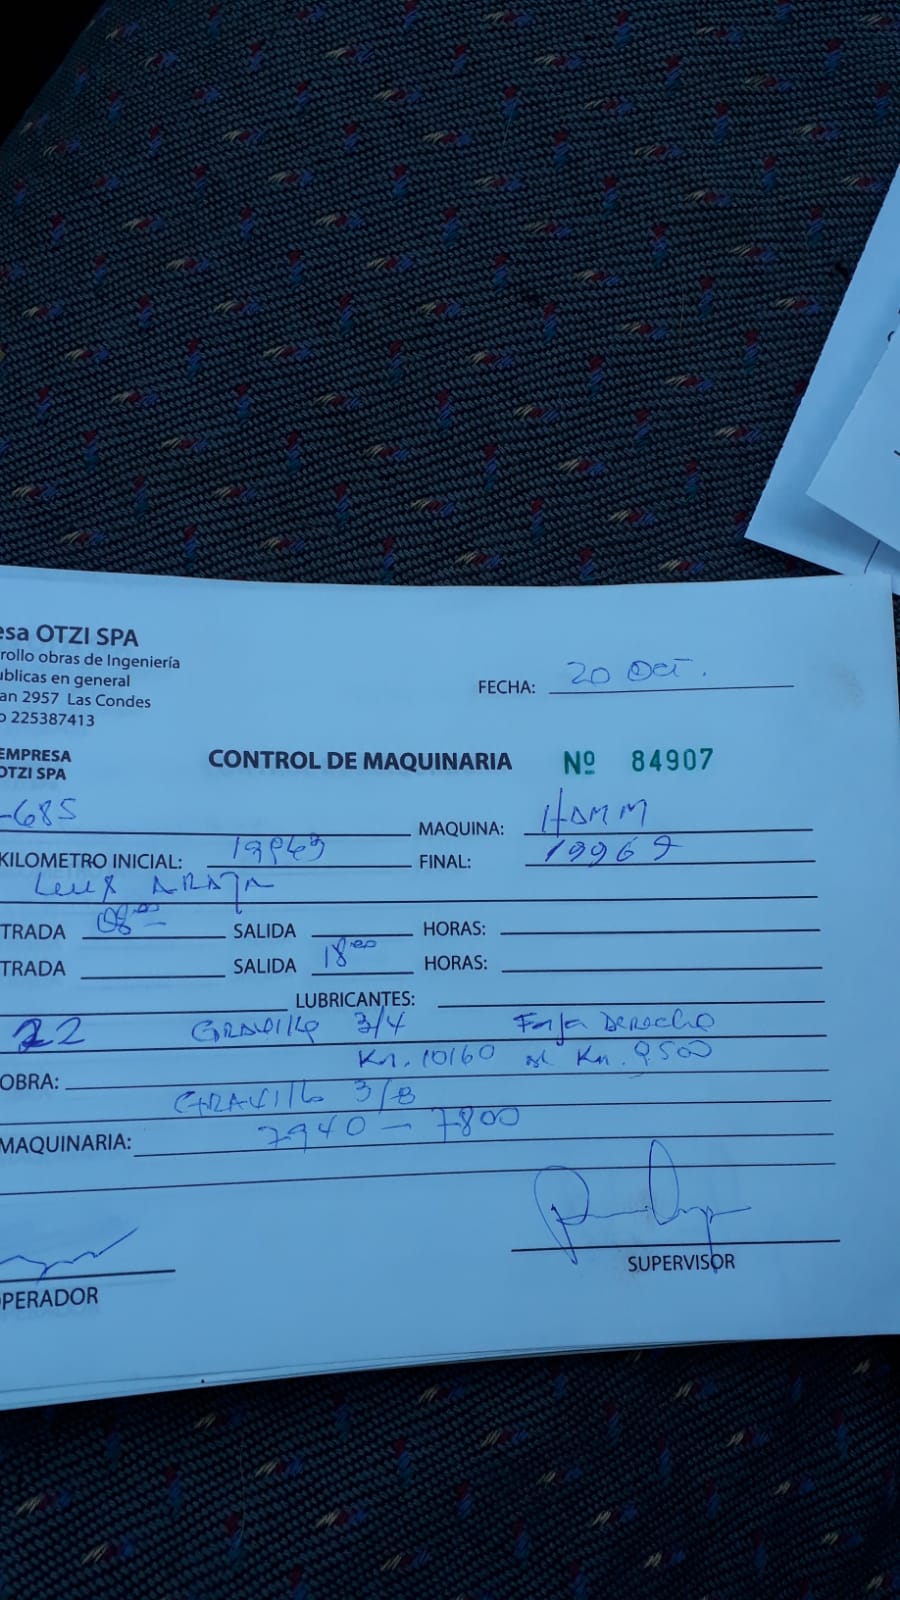 esa OTZI SPA
rollo obras de Ingeniería
ublicas en general
an 2957 Las Condes
o 225387413
FECHA: 20 Oct.
EMPRESA
OTZI SPA
CONTROL DE MAQUINARIA Nº 84907
-685 MAQUINA: HAMM
KILOMETRO INICIAL: 19963 FINAL: 19969
ARAJA
TRADA 08:00 SALIDA HORAS:
TRADA SALIDA 18:00 HORAS:
LUBRICANTES:
22 GRAVILLA 3/4 Faja Derecha
Km. 10160 al Km. 9500
OBRA:
GRAVILLA 3/8
MAQUINARIA: 7940 - 7800
OPERADOR
SUPERVISOR